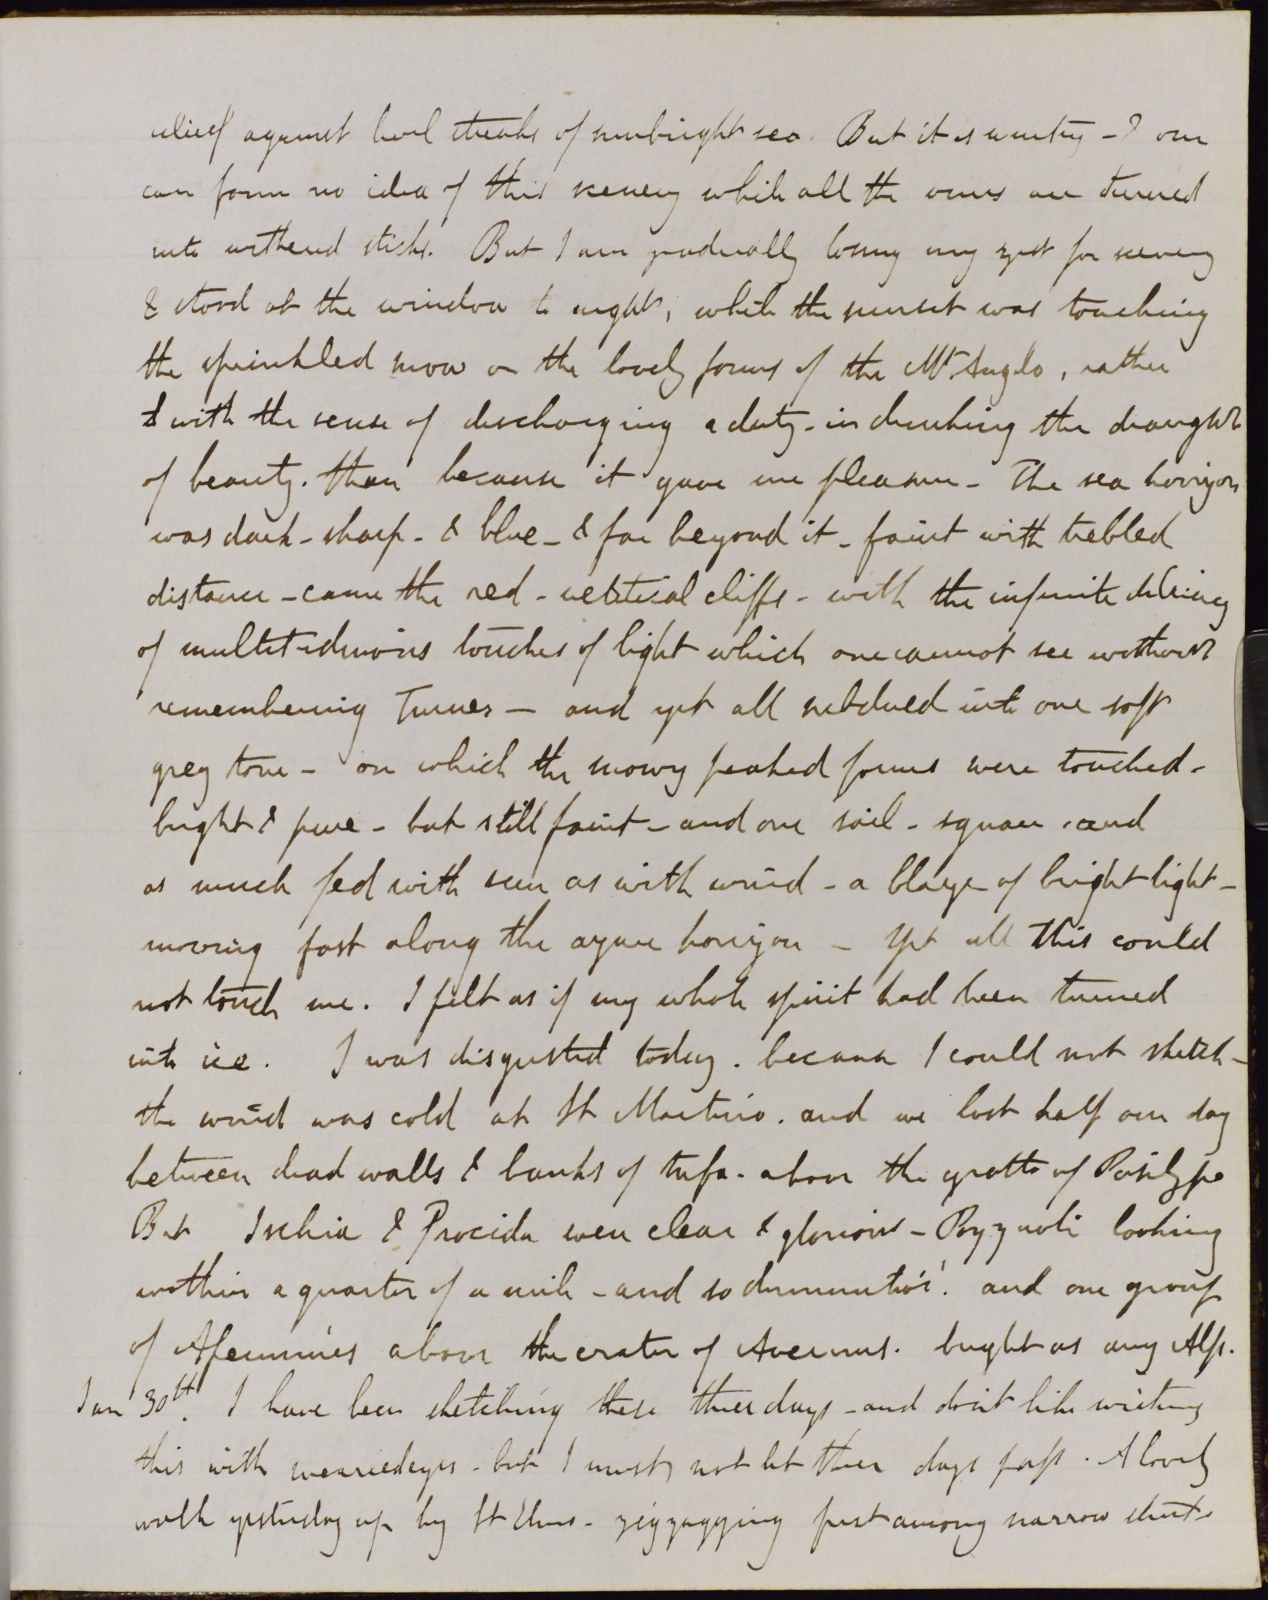 relief against level streaks of sunbright sea. But it is wintry - & one
can form no idea of this scenery while all the vines are turned
into withered sticks. But I am gradually losing my zest for scenery
& stood at the window to night, while the sunset was touching
the sprinkled snow on the lovely forms of the Mt Anglo, rather
with the sense of discharging a duty - in drinking the draught
of beauty. than because it gave me pleasure - The sea horizon
was dark - sharp - & blue - & far beyond it - faint with trebled
distance - came the red - vertical cliffs - with the infinite delicacy
of multitudinous touches of light which one cannot see without
remembering Turner - and yet all subdued into one soft
grey tone - on which the snowy peaked forms were touched -
bright & pure - but still faint - and one sail - square . and
as much fed with sun as with wind - a blaze of bright light -
moving fast along the azure horizon - yet all this could
not touch me. I felt as if my whole spirit had been turned
into ice. I was disgusted today. because I could not sketch -
the wind was cold at St Martino. and we lost half our day
between dead walls & banks of tufa. above the grotto of Posilype
But Ischia & Procida were clear & glorious - Pozzuoli looking
within a quarter of a mile - and so diminutive! and one group
of Apennines above the crater of Avernus. bright as any Alp.
Jan 30th. I have been sketching these three days - and don't like writing
this with wearied eyes - but I must not let these days pass. A lovely
walk yesterday up by St Elmo - zigzagging first among narrow streets